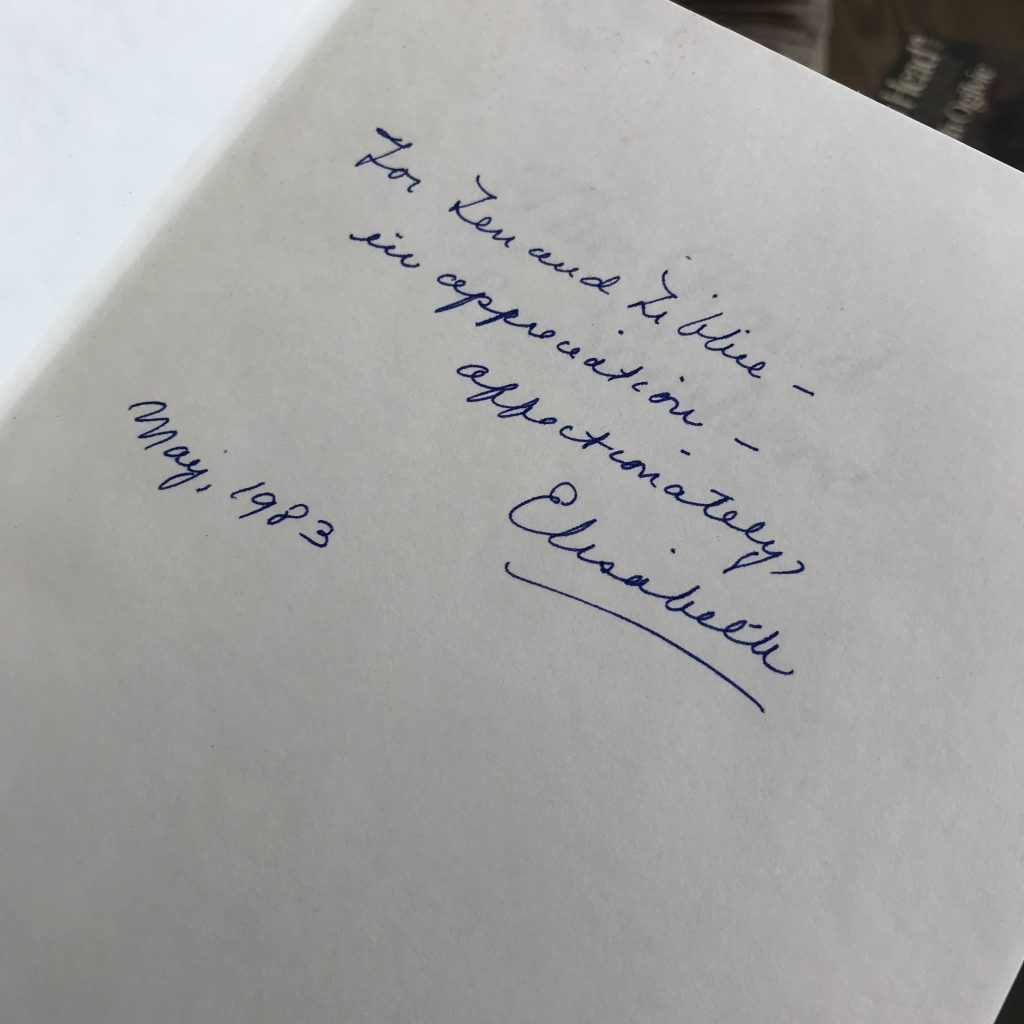 For Len and Libbie –
in appreciation –
affectionately,
Elisabeth
May, 1983
Head
Ogilvie